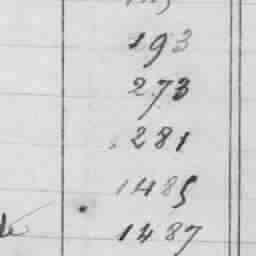 193
273
281
1485
1487